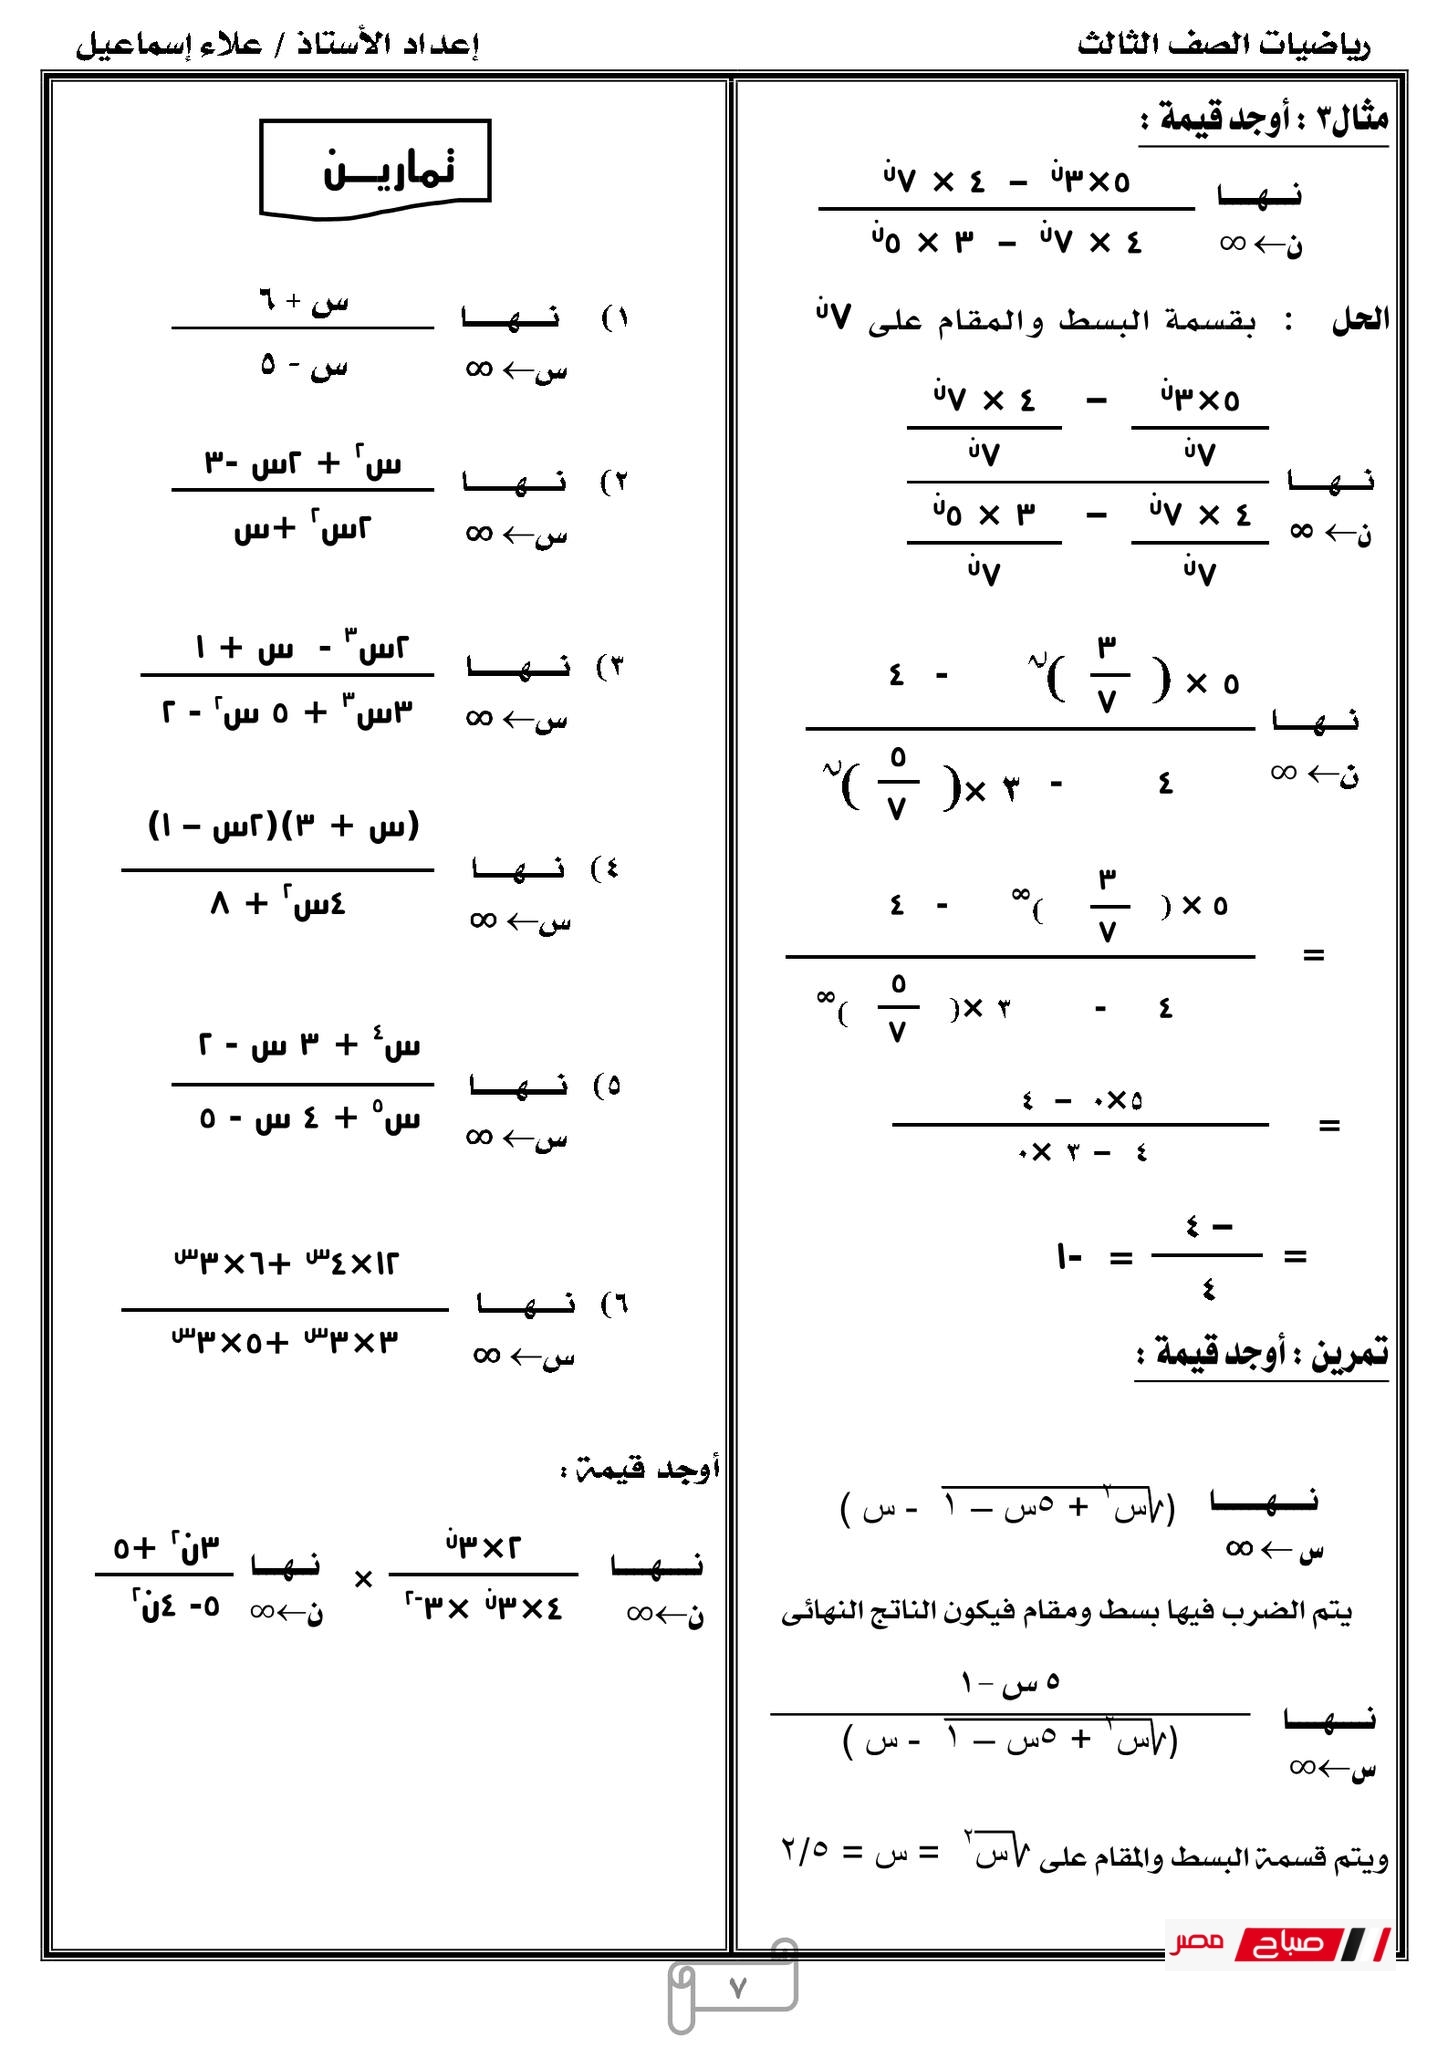 رياضيات الصف الثالث
إعداد الأستاذ / علاء إسماعيل
مثال٣ : أوجد قيمة :
نهـا
ن← ∞
٥×٣ن – ٤ × ٧ن
٤ × ٧ن – ٣ × ٥ن
الحل : بقسمة البسط والمقام على ٧ن
٥×٣ن – ٤ × ٧ن
٧ن ٧ن
نهـا
ن← ∞
٤ × ٧ن – ٣ × ٥ن
٧ن ٧ن
نهـا
ن← ∞
٥ × ( ٣/٧ )ن - ٤
٤ - ٣ ×( ٥/٧ )ن
=
٥ × ( ٣/٧ )∞ - ٤
٤ - ٣ ×( ٥/٧ )∞
=
٥×٠ – ٤
٤ – ٣ ×٠
= – ٤ / ٤ = -١
تمرين : أوجد قيمة :
نهـا (√س٢ + ٥س – ١ - س )
س ← ∞
يتم الضرب فيها بسط ومقام فيكون الناتج النهائى
نهـا
س←∞
٥ س – ١
(√س٢ + ٥س – ١ - س )
ويتم قسمة البسط والمقام على √س٢ = س = ٢/٥
صباح مصر
تمارين
١) نهـا
س← ∞
س + ٦
س - ٥
٢) نهـا
س← ∞
س٢ + ٢س -٣
٢س٢ +س
٣) نهـا
س← ∞
٢س٣ - س + ١
٣س٣ + ٥ س٢ - ٢
٤) نهـا
س← ∞
(س + ٣)(٢س – ١)
٤س٢ + ٨
٥) نهـا
س← ∞
س٤ + ٣ س - ٢
س٥ + ٤ س - ٥
٦) نهـا
س← ∞
١٢×٤س +٦×٣س
٣×٣س +٥×٣س
أوجد قيمة :
نهـا
ن←∞
٢×٣ن
٤×٣ن ×٣-٢
×
نهـا
ن←∞
٣ن٢ +٥
٥- ٤ن٢
٧